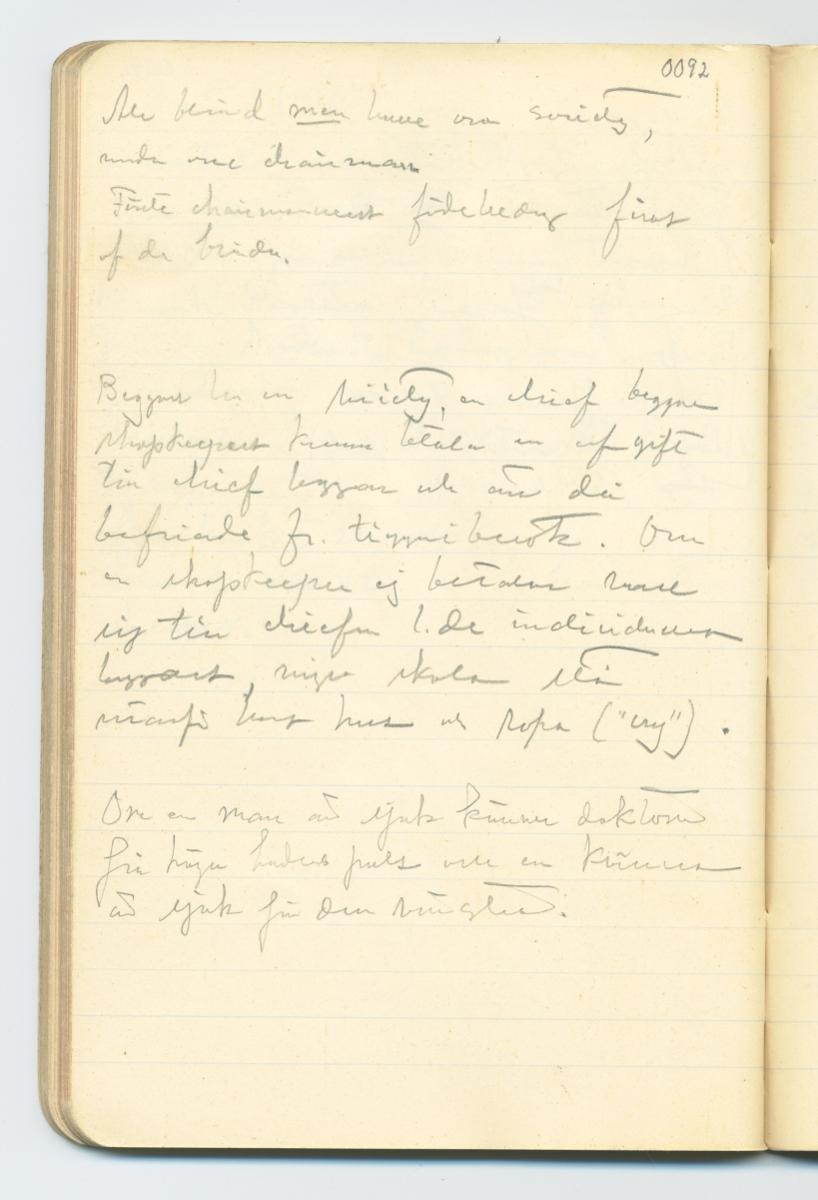 0092
All blind men have own society,
under one chairman
Förste chairmannens födelsedag first
of de blinda.
Beggars ha en society, en chief beggar
shopkeepers kunna betala en afgift
till chief beggar och äro då
befriade fr. tiggeribesök. Om
en shopkeeper ej betalar
sig till chiefen l. de individuella
beggars, några skola stå
utanför hans hus och ropa ("cry").
Om en man är sjuk känner doktorn
på högra handens puls om en kvinna
är sjuk på den vänstra.